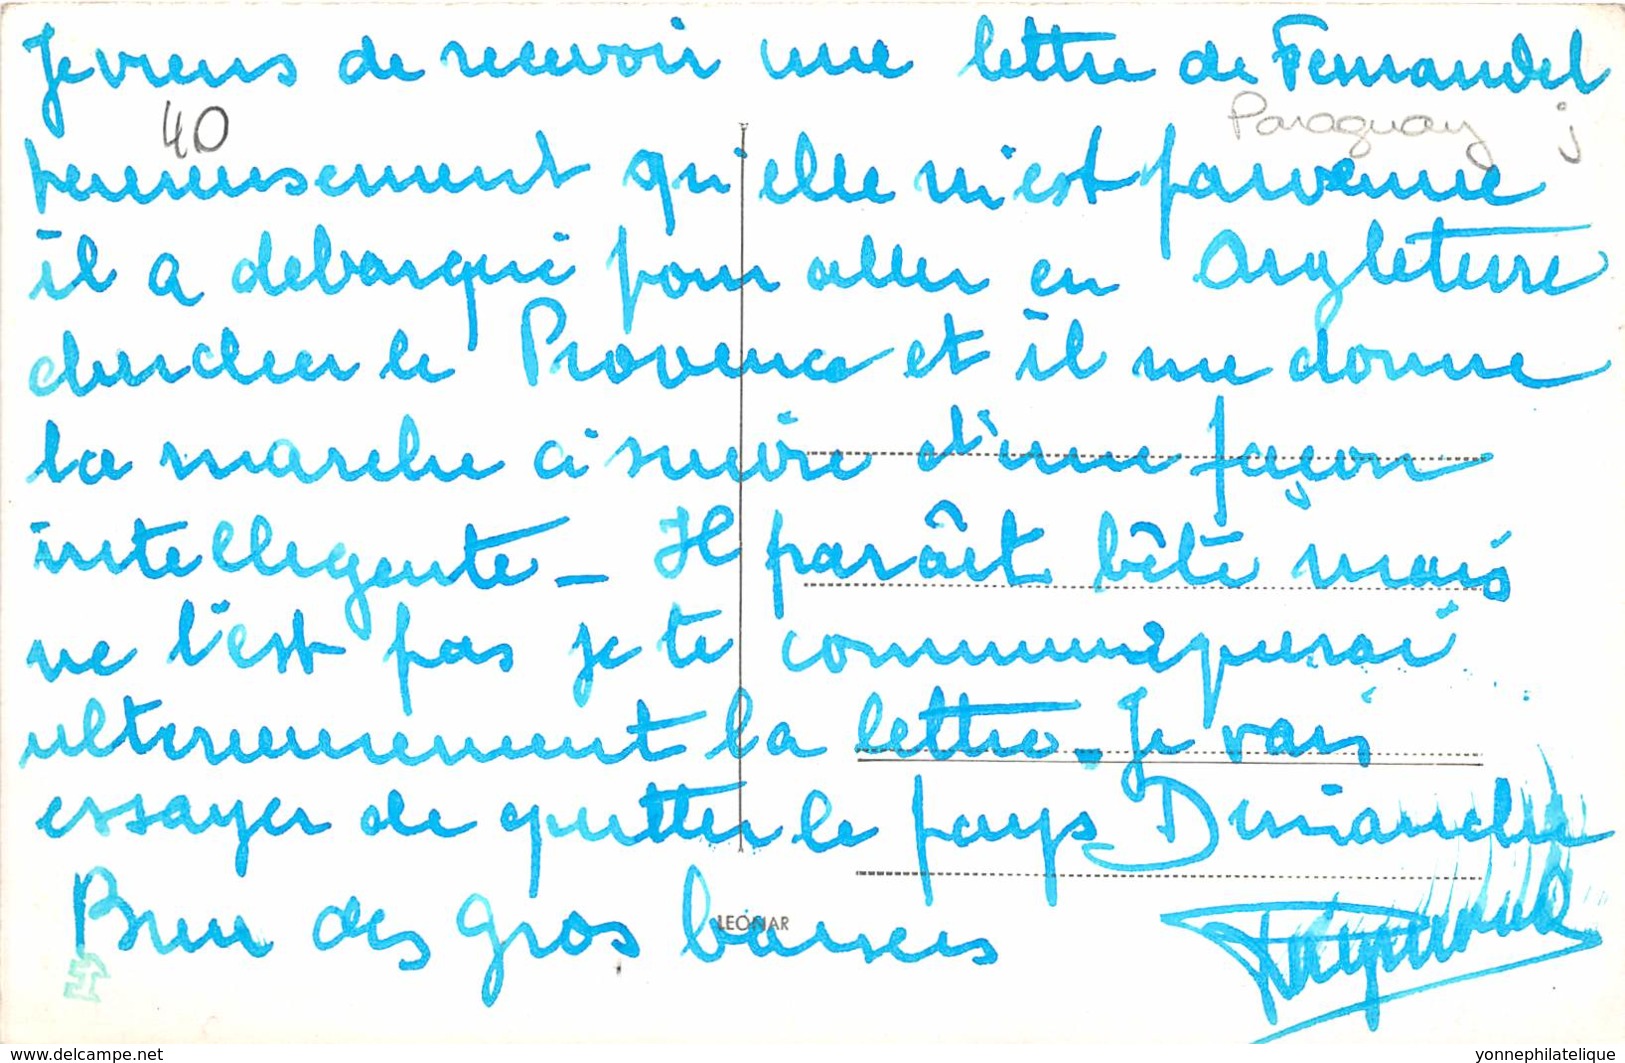 Je viens de recevoir une lettre de Fernandel
40
Paraguay j
heureusement qu'elle m'est parvenue
il a debarqué pour aller en Angleterre
chercher le Provence et il me donne
la marche à suivre d'une façon
intelligente _ Il paraît bête mais
ne l'est pas je te communiquerai
ulterieurement la lettre. Je vais
essayer de quitter le pays Dimanche
Bien des gros baisers
LEONAR
Raymond
www.delcampe.net
yonnephilatelique